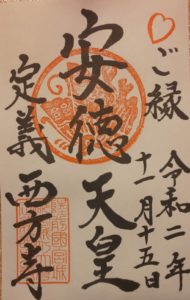 ご縁
令和二年
十一月十五日
安徳天皇
定義
西方寺